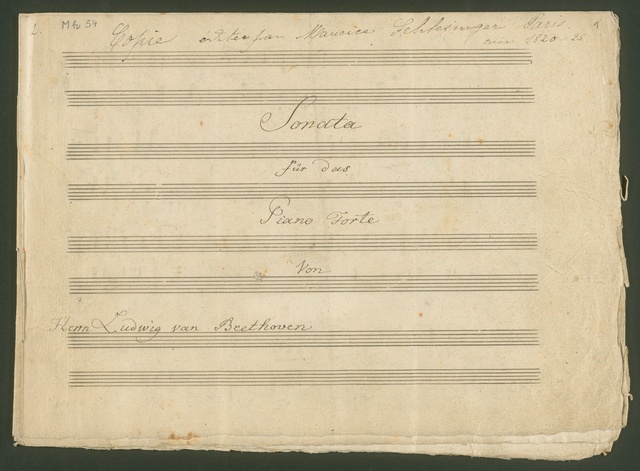 L. M h 54
Copie éditée par Maurice Schlesinger Paris 1
1820-25
Sonata
für das
Piano Forte
Von
Herrn Ludwig van Beethoven